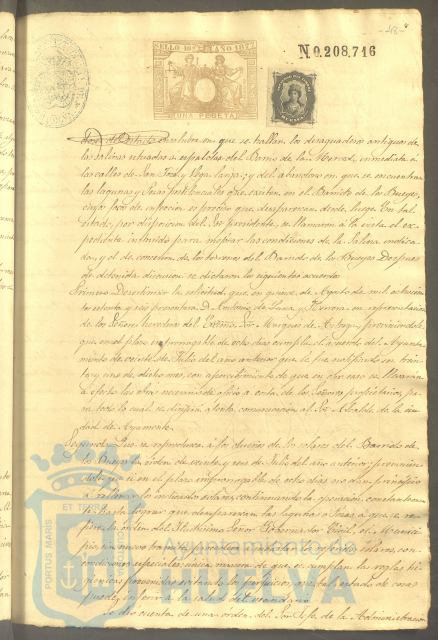 SELLO 10º AÑO 1877
UNA PESETA
N 0.208,716
insalubre en que se hallan los desaguaderos antiguos de
las Salinas situadas a espaldas del Barrio de la Merced, inmediata á
las calles de San José y Vega larga; y del abandono en que se encuentran
las lagunas y fosas pestilenciales que existen en el Barrido de los Bueyes,
cuyo foco de infeccion es preciso que desaparezca desde luego. En tal
estado, por disposicion del Sor. presidente, se llamaron á la vista el ex-
pediente instruido para mejorar las condiciones de la Salina indica-
da, y el de concesion de los terrenos del Barrido de los Bueyes. Despues
de detenida discusion se dictaron los siguientes acuerdos
Primero. Desestimar la solicitud, que en quince de Agosto de mil ochocien-
tos setenta y seis presentara D. Antonio de Luna y Herrera en representacion
de los Señores herederos del Excmo. Sor. Marques de
que en el plazo improrrogable de ocho dias cumpla el acuerdo del Ayunta-
miento de veinte de Julio del año anterior que le fue notificado en trein-
ta y uno de dicho mes, con apercibimiento de que en otro caso se llevarán
á efecto las obras necesarias de oficio á costa de los Señores propietarios, pa-
ra todo lo cual se dirijirá atenta comunicacion al Sor. Alcalde de la ciu-
dad de Ayamonte.
Segundo. Que se reproduzca á los dueños de los solares del Barrido de
los Bueyes la orden de veinte y seis de Julio del año anterior, previnien-
doles que si en el plazo improrrogable de ocho dias no dan principio
á rellenar los indicados solares, continuando la operacion constantemen-
te hasta lograr que desaparezcan las lagunas ó fosas á que se re-
fiere la orden del Ilustrisimo Señor Gobernador Civil, el Munici-
pio
condiciones especiales, unica manera de que se cumplan las reglas hi-
gienicas prevenidas evitando los perjuicios que tal estado de cosas
puede inferir á la salud del vecindario
Se dió cuenta de una orden del Sor. Jefe de la Administracion
PORTUS MARIS
ET TERRAE
CUSTODIA
Ayuntamiento de
HUELVA